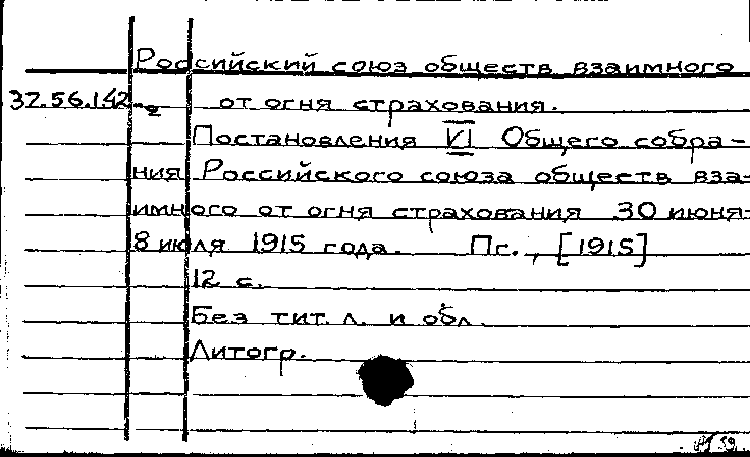 Российский союз обществ взаимного
37.56.142 от огня страхования.
Постановления VI Общего собра-
ния Российского союза обществ вза-
имного от огня страхования 30 июня-
8 июля 1915 года. Пг., [1915]
12 с.
Без тит. л. и обл.
Литогр.